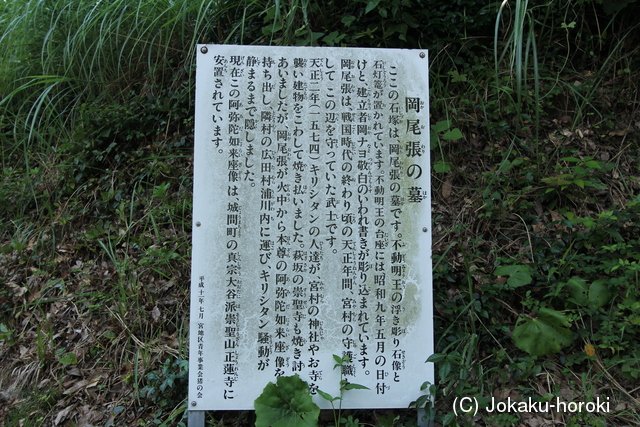 岡尾張の墓
ここの石塚は、岡尾張の墓です。不動明王の浮き彫り石像と
石灯篭が置かれています。不動明王の台座には昭和九年五月の日付
けと、建立者岡ナヨ敬白のいわれ書きが彫り込まれています。
岡尾張は、戦国時代の終わり頃の天正年間、宮村の守護職と
して この辺を守っていた武士です。
天正二年(一五七四)キリシタンの人達が、宮村の神社やお寺を
襲い建物をこわして焼き払いました。萩坂の崇聖寺も焼き討ちに
あいましたが、岡尾張が火中から本尊の阿弥陀如来座像を
持ち出し、隣村の広田村浦川内に運び、キリシタン騒動が
静まるまで隠しました。
現在この阿弥陀如来座像は、城間町の真宗大谷派崇聖山正蓮寺に
安置されています。
平成十二年七月 宮地区青年事業会猪の会
(C) Jokaku-horoki